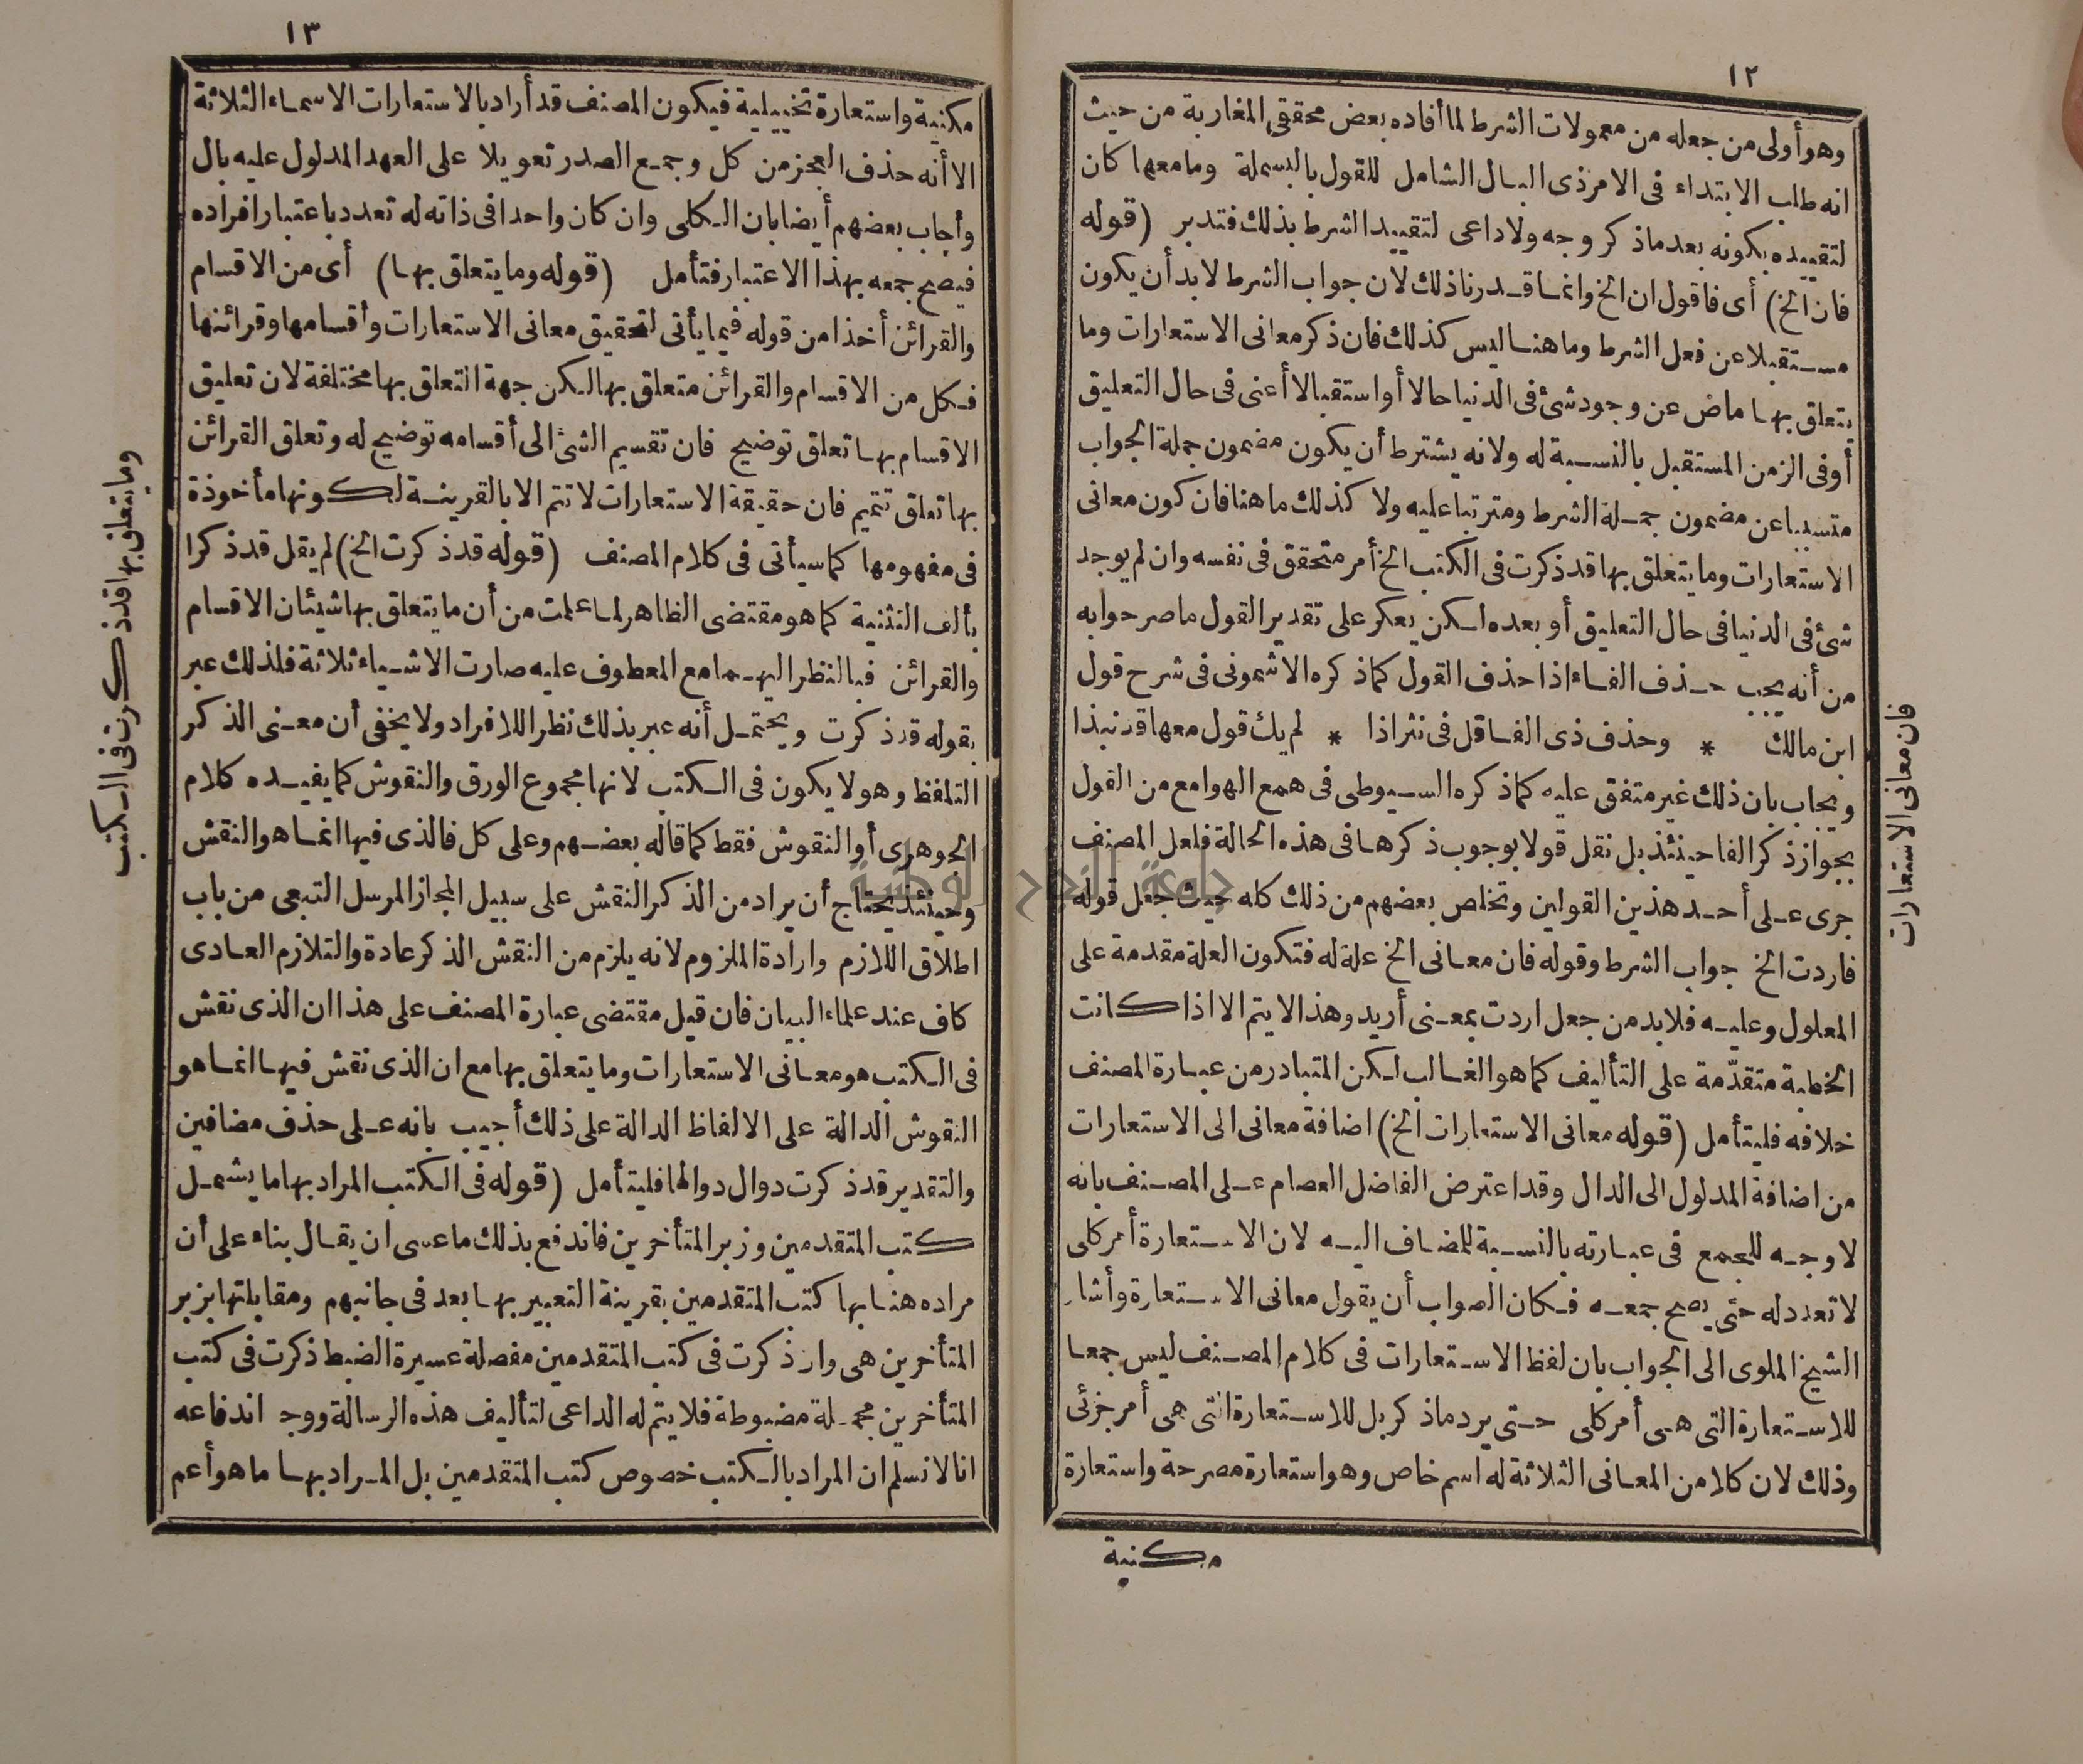 ١٢
وهو أولى من جعله من معمولات الشرط لما أفاده بعض محققي المغاربة من حيث
انه طلب الابتداء فى الامر ذى البال الشامل للقول بالبسملة وما معها كان
لتقييده بكونه بعد ما ذكر وجه ولا داعى لتقييد الشرط بذلك فتدبر (قوله
فان الخ) أى فاقول ان الخ وانما قدرنا ذلك لان جواب الشرط لا بد أن يكون
مستقبلا عن فعل الشرط وما هنا ليس كذلك فان ذكر معانى الاستعارات وما
يتعلق بها ماض عن وجود شئ فى الدنيا حالا أو استقبالا أعنى فى حال التعليق
أو فى الزمن المستقبل بالنسبة له ولانه يشترط أن يكون مضمون جملة الجواب
متسببا عن مضمون جملة الشرط ومترتبا عليه ولا كذلك ما هنا فان كون معانى
الاستعارات وما يتعلق بها قد ذكرت فى الكتب الخ أمر متحقق فى نفسه وان لم يوجد
شئ فى الدنيا فى حال التعليق أو بعده لكن يعكر على تقدير القول ما صرحوا به
من أنه يجب حذف الفاء اذا حذف القول كما ذكره الاشمونى فى شرح قول
ابن مالك * وحذف ذى الفا قل فى نثر اذا * لم يك قول معها قد نبذا
ويجاب بان ذلك غير متفق عليه كما ذكره السيوطى فى همع الهوامع من القول
بجواز ذكر الفا حينئذ بل نقل قولا بوجوب ذكرها فى هذه الحالة فلعل المصنف
جرى على أحد هذين القولين وتخلص بعضهم من ذلك كله حيث جعل قوله
فاردت الخ جواب الشرط وقوله فان معانى الخ علة له فتكون العلة مقدمة على
المعلول وعليه فلا بد من جعل اردت بمعنى أريد وهذا لا يتم الا اذا كانت
الخطبة متقدّمة على التأليف كما هو الغالب لكن المتبادر من عبارة المصنف
خلافه فليتأمل (قوله معانى الاستعارات الخ) اضافة معانى الى الاستعارات
من اضافة المدلول الى الدال وقد اعترض الفاضل العصام على المصنف بانه
لا وجه للجمع فى عبارته بالنسبة للمضاف اليه لان الاستعارة أمر كلى
لا تعدد له حتى يصح جمعه فكان الصواب أن يقول معانى الاستعارة وأشار
الشيخ الملوى الى الجواب بان لفظ الاستعارات فى كلام المصنف ليس جمعا
للاستعارة التى هى أمر كلى حتى يرد ما ذكر بل للاستعارة التى هى أمر جزئى
وذلك لان كلا من المعانى الثلاثة له اسم خاص وهو استعارة مصرحة واستعارة
مكنية
فان معانى الاستعارات
١٣
مكنية واستعارة تخييلية فيكون المصنف قد أراد بالاستعارات الاسماء الثلاثة
الا أنه حذف العجز من كل وجمع الصدر تعويلا على العهد المدلول عليه بال
وأجاب بعضهم أيضا بان الكلى وان كان واحدا فى ذاته له تعدد باعتبار افراده
فيصح جمعه بهذا الاعتبار فتأمل (قوله وما يتعلق بها) أى من الاقسام
والقرائن أخذا من قوله فيما يأتى لتحقيق معانى الاستعارات وأقسامها وقرائنها
فكل من الاقسام والقرائن متعلق بها لكن جهة التعلق بها مختلفة لان تعليق
الاقسام بها تعلق توضيح فان تقسيم الشئ الى أقسامه توضيح له وتعلق القرائن
بها تعلق تتميم فان حقيقة الاستعارات لا تتم الا بالقرينة لكونها مأخوذة
فى مفهومها كما سيأتى فى كلام المصنف (قوله قد ذكرت الخ) لم يقل قد ذكرا
بألف التثنية كما هو مقتضى الظاهر لما علمت من أن ما يتعلق بها شيئان الاقسام
والقرائن فبالنظر اليهما مع المعطوف عليه صارت الاشياء ثلاثة فلذلك عبر
بقوله قد ذكرت ويحتمل أنه عبر بذلك نظرا للافراد ولا يخفى أن معنى الذكر
التلفظ وهو لا يكون فى الكتب لانها مجموع الورق والنقوش كما يفيده كلام
الجوهرى أو النقوش فقط كما قاله بعضهم وعلى كل فالذى فيها انما هو النقش
وحينئذ يحتاج أن يراد من الذكر النقش على سبيل المجاز المرسل التبعى من باب
اطلاق اللازم وارادة الملزوم لانه يلزم من النقش الذكر عادة والتلازم العادى
كاف عند علماء البيان فان قيل مقتضى عبارة المصنف على هذا ان الذى نقش
فى الكتب هو معانى الاستعارات وما يتعلق بها مع ان الذى نقش فيها انما هو
النقوش الدالة على الالفاظ الدالة على ذلك أجيب بانه على حذف مضافين
والتقدير قد ذكرت دوال دوالها فليتأمل (قوله فى الكتب المراد بها ما يشمل
كتب المتقدمين وزبر المتأخرين فاندفع بذلك ما عسى ان يقال بناء على أن
مراده هنا بها كتب المتقدمين بقرينة التعبير بها بعد فى جانبهم ومقابلتها بزبر
المتأخرين هى وان ذكرت فى كتب المتقدمين مفصلة عسيرة الضبط ذكرت فى كتب
المتأخرين مجملة مضبوطة فلا يتم له الداعى لتأليف هذه الرسالة ووجه اندفاعه
انا لا نسلم ان المراد بالكتب خصوص كتب المتقدمين بل المراد بها ما هو أعم
وما يتعلق بها قد ذكرت فى الكتب
جامعة النجاح الوطنية